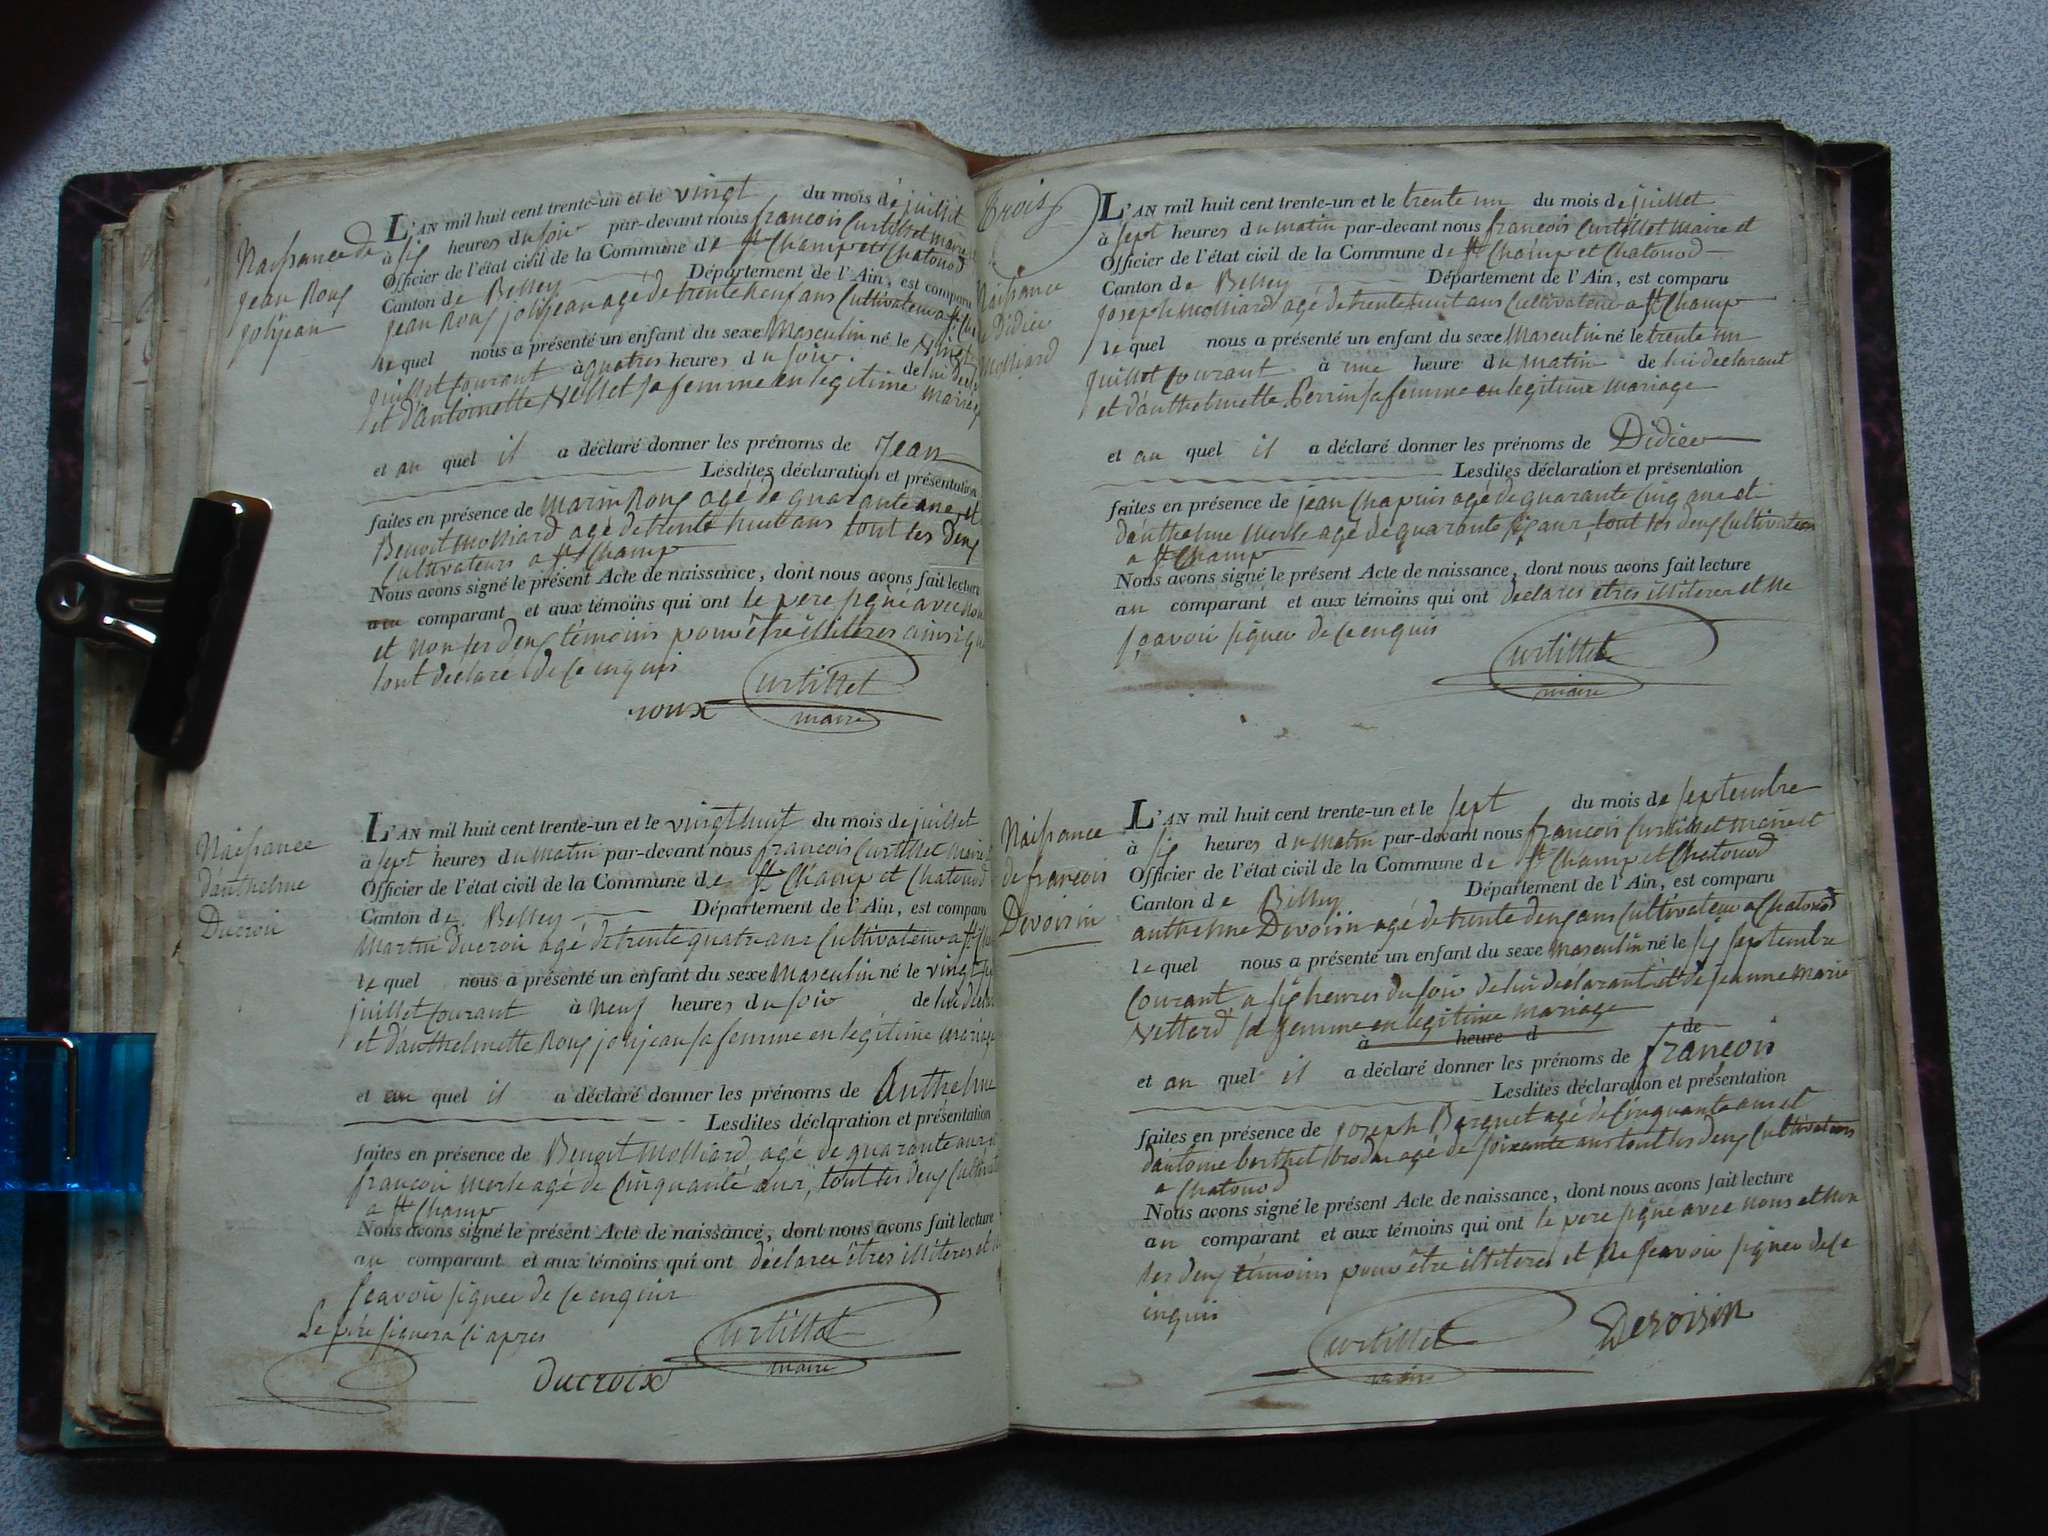 Naissance de
Jean Roux
jolijean
L'AN mil huit cent trente-un et le vingt du mois de juillet
à six heures du soir par-devant nous françois Curtillet maire
Officier de l'état civil de la Commune de St Champ et Chatonod
Canton de Belley Département de l'Ain, est comparu
jean Roux jolijean agé de trente neuf ans Cultivateur a St
le quel nous a présenté un enfant du sexe Masculin né le vingt
juillet Courant à quatres heures du soir. de lui
et d'antoinette Vellet sa femme en legitime mariage
et au quel il a déclaré donner les prénoms de Jean
Lesdites déclaration et présentation
faites en présence de marin Roux agé de quarante ans et
Benoit Molliard agé de trente huit ans tout les deux
Cultivateurs a St Champ
Nous avons signé le présent Acte de naissance, dont nous avons fait lecture
au comparant et aux témoins qui ont le pere signé avec nous
et non les deux témoins pour être illiteres ainsi
lont déclaré de ce enquis
roux Curtillet
maire
Naissance
d'anthelme
Ducroi
L'AN mil huit cent trente-un et le vingt huit du mois de juillet
à sept heures du matin par-devant nous francois Curtillet maire
Officier de l'état civil de la Commune de St Champ et Chatonod
Canton de Belley Département de l'Ain, est comparu
Martin Ducroi agé de trente quatre ans Cultivateur a St
le quel nous a présenté un enfant du sexe Masculin né le vingt
juillet Courant à neuf heures du soir de lui
et d'anthelmette Roux jolijean sa femme en legitime mariage
et au quel il a déclaré donner les prénoms de Anthelme
Lesdites déclaration et présentation
faites en présence de Benoit Molliard agé de quarante ans
françoi merle agé de Cinquante ans, tout les deux
a St Champ
Nous avons signé le présent Acte de naissance, dont nous avons fait lecture
au comparant et aux témoins qui ont déclaree êtres illiteres et
scavoir signer de ce enquis
Le père signera ci apres
ducroix Curtillet
maire
trois
Naissance
Didier
Molliard
L'AN mil huit cent trente-un et le trente un du mois de juillet
à sept heures du matin par-devant nous françois Curtillet maire et
Officier de l'état civil de la Commune de St Champ et Chatonod
Canton de Belley Département de l'Ain, est comparu
joseph Molliard agé de trente huit ans Cultivateur a St Champ
le quel nous a présenté un enfant du sexe Masculin né le trente un
juillet Courant à une heure du matin de lui declarant
et d'anthelmette Perrin sa femme en legitime mariage
et au quel il a déclaré donner les prénoms de Didier
Lesdites déclaration et présentation
faites en présence de jean Chapuis agé de quarante cinq ans et
d'anthelme merle agé de quarante six ans, tout les deux Cultivateurs
a St Champ
Nous avons signé le présent Acte de naissance, dont nous avons fait lecture
au comparant et aux témoins qui ont declares etres illiteres et ne
scavoir signer de ce enquis
Curtillet
maire
Naissance
de françois
Devoisin
L'AN mil huit cent trente-un et le sept du mois de septembre
à six heures du matin par-devant nous françois Curtillet maire et
Officier de l'état civil de la Commune de St Champ et Chatonod
Canton de Belley Département de l'Ain, est comparu
anthelme Devoisin agé de trente deux ans Cultivateur a Chatonod
le quel nous a présenté un enfant du sexe masculin né le six septembre
Courant a six heures du soir de lui declarant et de jeanne Marie
Vettard sa femme en legitime mariage
à heure d de
et au quel il a déclaré donner les prénoms de françois
Lesdites déclaration et présentation
faites en présence de joseph agé de Cinquante ans et
d'antoine berthet agé de soixante ans tout les deux Cultivateurs
a Chatonod
Nous avons signé le présent Acte de naissance, dont nous avons fait lecture
au comparant et aux témoins qui ont le pere signé avec nous et non
les deux témoins pour être illiteres et ne scavoir signer de ce
inquis
Curtillet Devoisin
maire